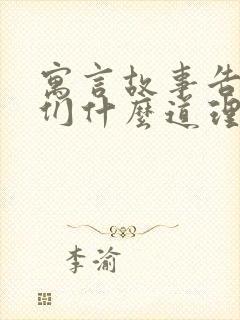 寓言故事告
们什麼道理
李渝